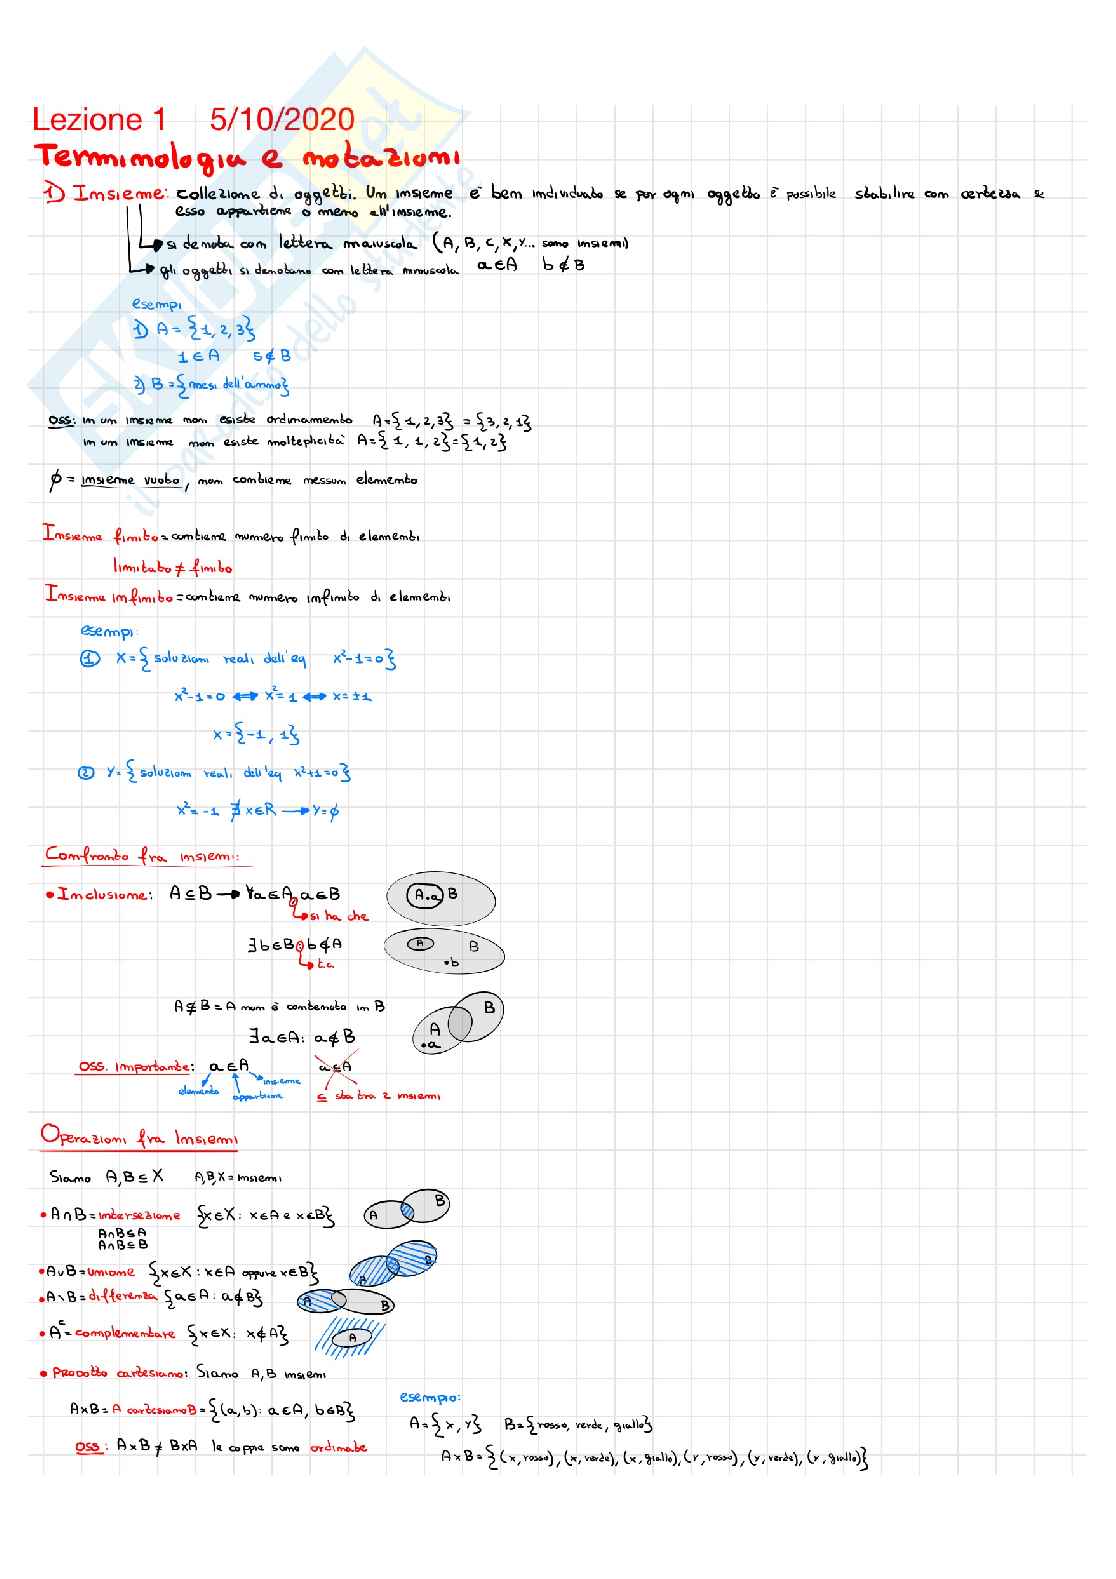 Lezione 1 5/10/2020
Terminologia e notazioni
1) Insieme: collezione di oggetti. Un insieme è ben individuato se per ogni oggetto è possibile stabilire con certezza se
esso appartiene o meno all'insieme.
si denota con lettera maiuscola (A, B, C, X, Y... sono insiemi)
gli oggetti si denotano con lettera minuscola a∈A b∉B
esempi
1) A = {1, 2, 3}
1∈A 5∉B
2) B = {mesi dell'anno}
OSS: in un insieme non esiste ordinamento A={1, 2, 3} = {3, 2, 1}
in un insieme non esiste molteplicità A={1, 1, 2}={1, 2}
∅ = insieme vuoto, non contiene nessun elemento
Insieme finito = contiene numero finito di elementi
limitato ≠ finito
Insieme infinito = contiene numero infinito di elementi
esempi:
① X = {soluzioni reali dell'eq x²-1=0}
x²-1=0 ⟷ x²=1 ⟷ x=±1
X={-1, 1}
② Y={soluzioni reali dell'eq x²+1=0}
x²=-1 ∄x∈R → Y=∅
Confronto fra insiemi:
• Inclusione: A⊆B → ∀a∈A, a∈B A .a B
si ha che
∃b∈B: b∉A A B .b
t.c.
A⊈B = A non è contenuto in B B
∃a∈A: a∉B A .a
OSS. importante: a∈A a⊆A
elemento appartiene insieme ⊆ sta tra 2 insiemi
Operazioni fra Insiemi
Siano A,B⊆X A,B,X = insiemi
• A∩B = intersezione {x∈X: x∈A e x∈B} A B
A∩B⊆A
A∩B⊆B
• A∪B = unione {x∈X: x∈A oppure x∈B} A B
• A∖B = differenza {a∈A: a∉B} A B
• Aᶜ = complementare {x∈X: x∉A} A
• Prodotto cartesiano: Siano A,B insiemi
esempio:
A×B = A cartesiano B = {(a,b): a∈A, b∈B} A={x, y} B={rosso, verde, giallo}
OSS: A×B ≠ B×A le coppie sono ordinate A×B={(x,rosso), (x,verde), (x,giallo), (y,rosso), (y,verde), (y,giallo)}
il paradiso dello studente